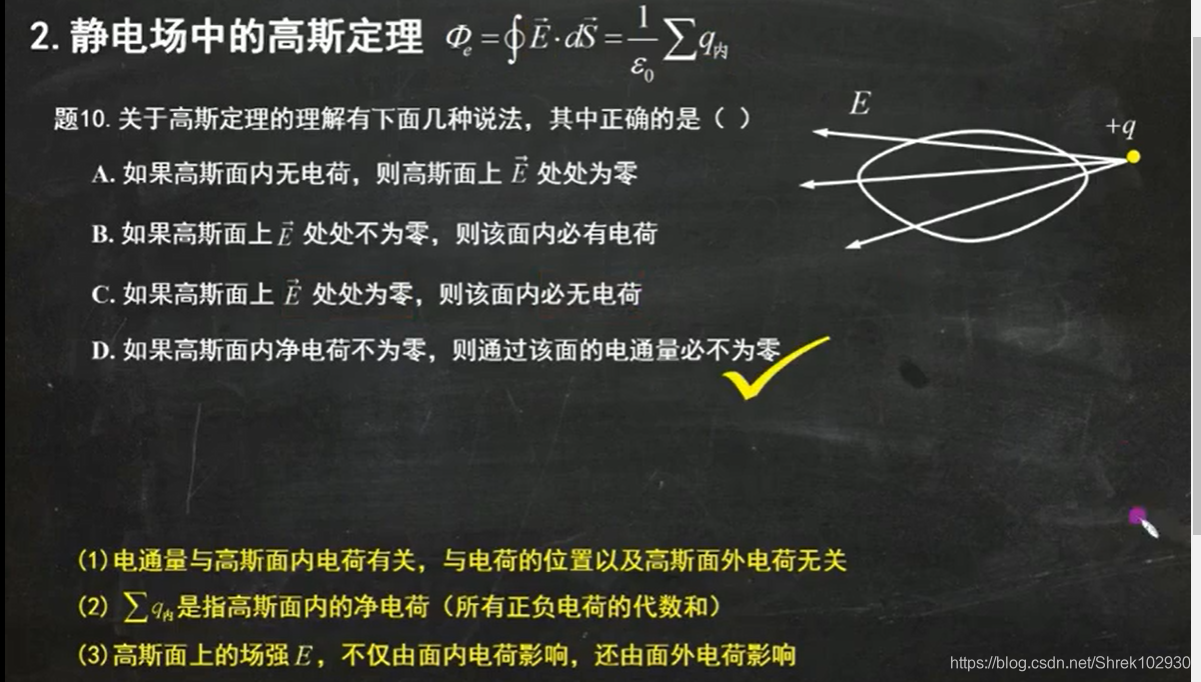 2.静电场中的高斯定理 Φₑ=∮E⃗·dS⃗=1/ε₀ ∑q内
题10.关于高斯定理的理解有下面几种说法，其中正确的是（ ）
E
+q
A. 如果高斯面内无电荷，则高斯面上 E⃗ 处处为零
B. 如果高斯面上 E⃗ 处处不为零，则该面内必有电荷
C. 如果高斯面上 E⃗ 处处为零，则该面内必无电荷
D. 如果高斯面内净电荷不为零，则通过该面的电通量必不为零
(1)电通量与高斯面内电荷有关，与电荷的位置以及高斯面外电荷无关
(2) ∑q内是指高斯面内的净电荷（所有正负电荷的代数和）
(3)高斯面上的场强E，不仅由面内电荷影响，还由面外电荷影响
https://blog.csdn.net/Shrek102930